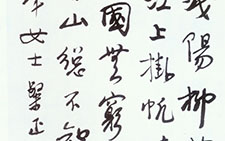 陽柳
江上掛帆
國無窮
山總不知
女士粲正